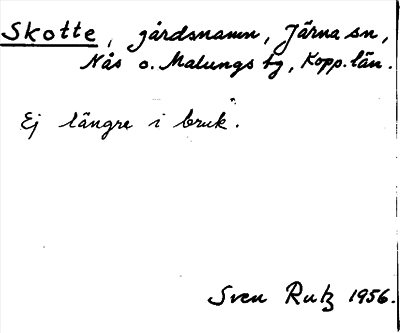 Skotte, gårdsnamn, Järna sn,
Nås o. Malungs tg, Kopp. län.
Ej längre i bruk.
Sven Rutz 1956.